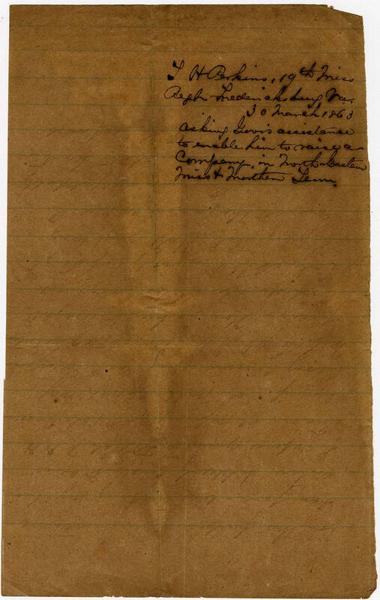 T H Perkins, 19th Miss
Regt Fredericksburg Va
30 March 1863
asking Gov's assistance
to enable him to raise a
Company in North eastern
Miss & Northern Tenn.